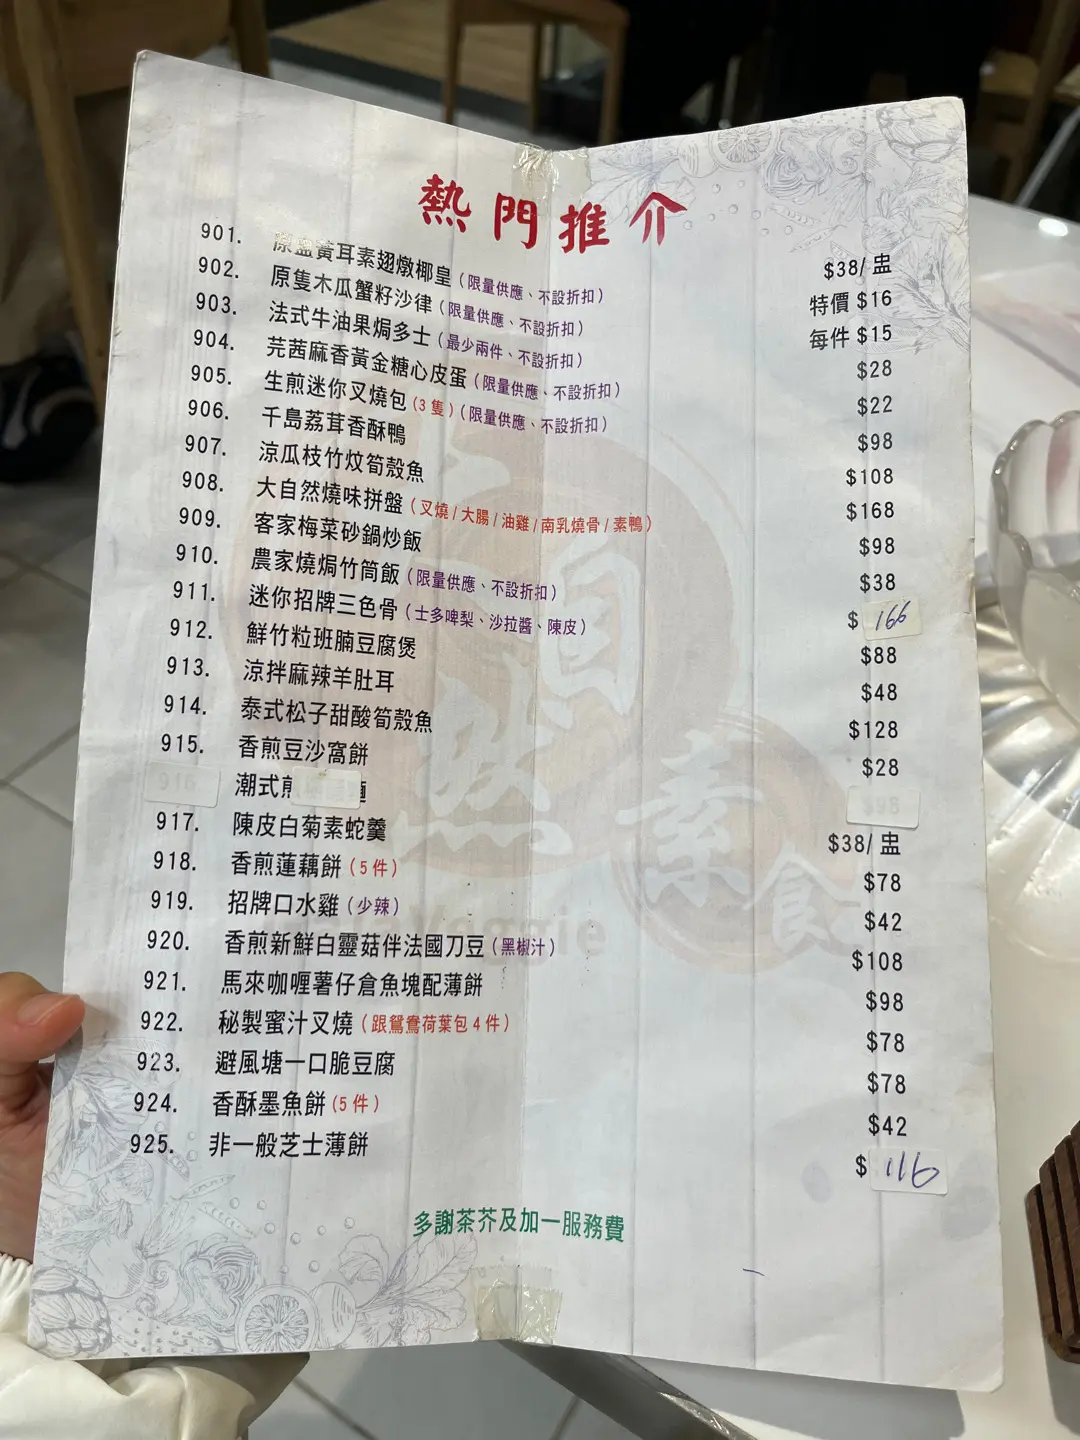 熱門推介
901. 原盅黃耳素翅燉椰皇(限量供應、不設折扣) $38/盅
902. 原隻木瓜蟹籽沙律(限量供應、不設折扣) 特價 $16
903. 法式牛油果焗多士(最少兩件、不設折扣) 每件 $15
904. 芫茜麻香黃金糖心皮蛋(限量供應、不設折扣) $28
905. 生煎迷你叉燒包(3隻)(限量供應、不設折扣) $22
906. 千島荔茸香酥鴨 $98
907. 涼瓜枝竹炆筍殼魚 $108
908. 大自然燒味拼盤(叉燒/大腸/油雞/南乳燒骨/素鴨) $168
909. 客家梅菜砂鍋炒飯 $98
910. 農家燒焗竹筒飯(限量供應、不設折扣) $38
911. 迷你招牌三色骨(士多啤梨、沙拉醬、陳皮) $166
912. 鮮竹粒班腩豆腐煲 $88
913. 涼拌麻辣羊肚耳 $48
914. 泰式松子甜酸筍殼魚 $128
915. 香煎豆沙窩餅 $28
916. 潮式煎麵 $98
917. 陳皮白菊素蛇羹 $38/盅
918. 香煎蓮藕餅(5件) $78
919. 招牌口水雞(少辣) $42
920. 香煎新鮮白靈菇伴法國刀豆(黑椒汁) $108
921. 馬來咖喱薯仔倉魚塊配薄餅 $98
922. 秘製蜜汁叉燒(跟鴛鴦荷葉包4件) $78
923. 避風塘一口脆豆腐 $78
924. 香酥墨魚餅(5件) $42
925. 非一般芝士薄餅 $116
多謝茶芥及加一服務費
大自然素食
Veggie